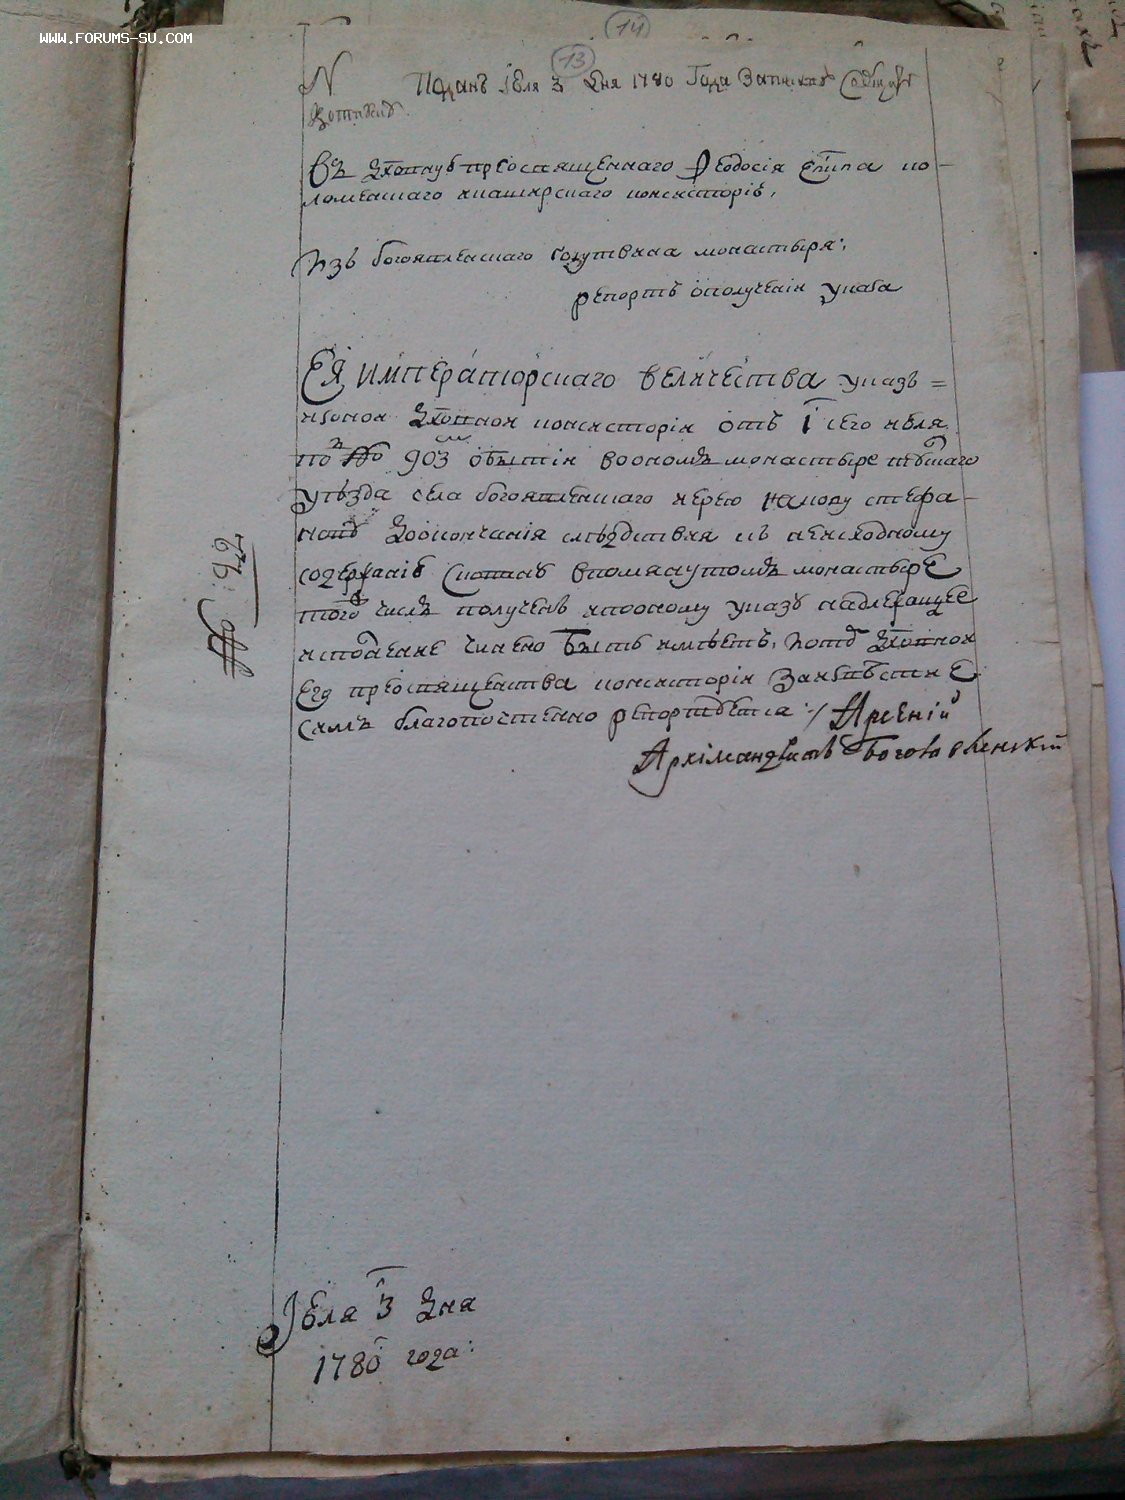 WWW.FORUMS-SU.COM
14
13
N Поданъ июля 3 дня 1780 Года Записавъ
Въ духовную преосвященнаго Феодосія епспа ко-
ломенскаго икаширскаго консисторію,
Изъ богоявленскаго голутвина монастыря,
репортъ ополученіи указа
ЕЯ ИМПЕРАТОРСКАГО ВЕЛИЧЕСТВА указъ =
изоной духовной консисторіи отъ 1 сего июля
по № 903 обытіи воономъ монастыре
уѣзда села богоявленскаго иерею иакову стефа-
нову доокончанія слѣдствия въ неисходному
содержанію впомянутомъ монастырѣ
того числа полученъ ипооному указу надлежащее
исполнение чинено быть имѣетъ, ичто духовной
Его преосвященства консисторіи
симъ благопочтенно репортуется :/ Арсеній
Архімандритъ Богоявленскій
№: 92
Июля 3 дня
1780 года: